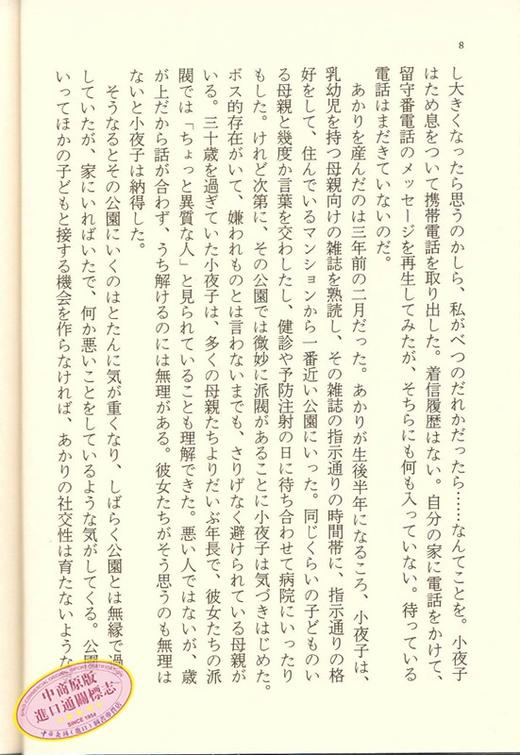 8
し大きくなったら思うのかしら、私がべつのだれかだったら……なんてことを。小夜子
はため息をついて携帯電話を取り出した。着信履歴はない。自分の家に電話をかけて、
留守番電話のメッセージを再生してみたが、そちらにも何も入っていない。待っている
電話はまだきていないのだ。
あかりを産んだのは三年前の二月だった。あかりが生後半年になるころ、小夜子は、
乳幼児を持つ母親向けの雑誌を熟読し、その雑誌の指示通りの時間帯に、指示通りの格
好をして、住んでいるマンションから一番近い公園にいった。同じくらいの子どものい
る母親と幾度か言葉を交わしたし、健診や予防注射の日に待ち合わせて病院にいったり
もした。けれど次第に、その公園では微妙に派閥があることに小夜子は気づきはじめた。
ボス的存在がいて、嫌われものとは言わないまでも、さりげなく避けられている母親が
いる。三十歳を過ぎていた小夜子は、多くの母親たちよりだいぶ年長で、彼女たちの派
閥では「ちょっと異質な人」と見られていることも理解できた。悪い人ではないが、歳
が上だから話が合わず、うち解けるのには無理がある。彼女たちがそう思うのも無理は
ないと小夜子は納得した。
そうなるとその公園にいくのはとたんに気が重くなり、しばらく公園とは無縁で過
していたが、家にいればいたで、何か悪いことをしているような気がしてくる。公園
いってほかの子どもと接する機会を作らなければ、あかりの社交性は育たないような
中商原版
進口通關標志
SINCE 1954